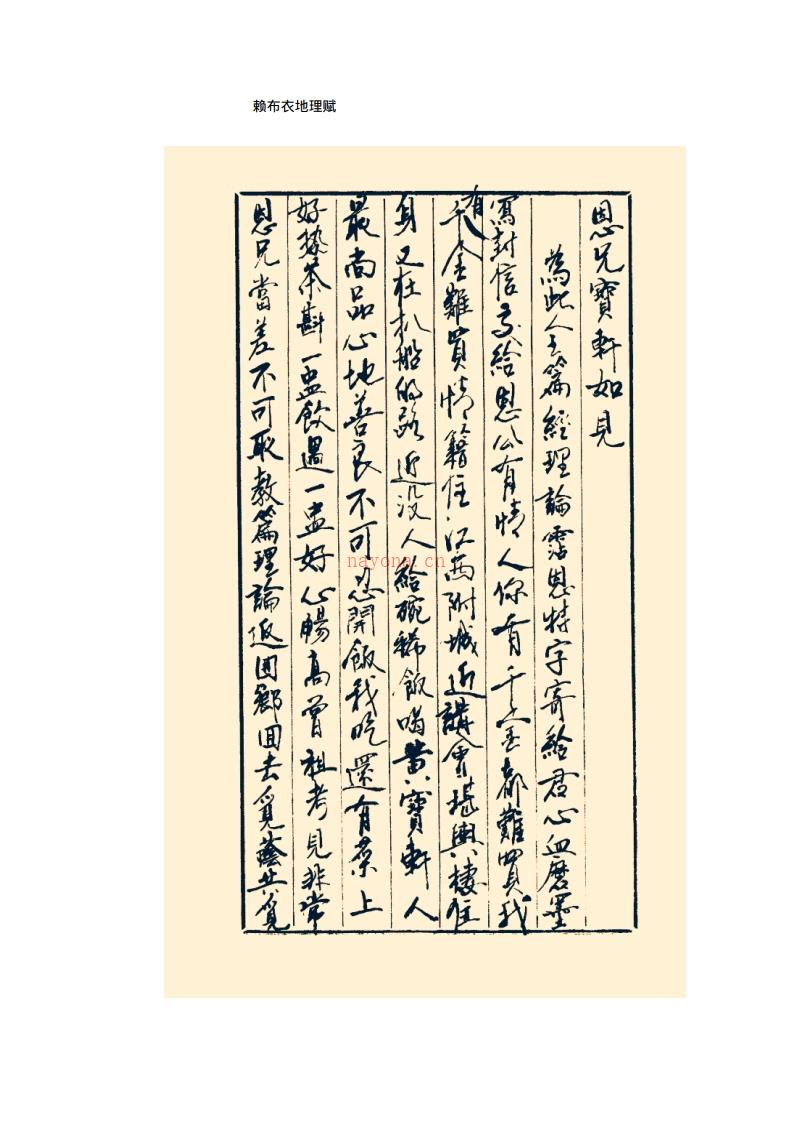 赖布衣地理赋
恩兄寶軒如見
為此人王篇經理論霑恩特字寄給君心血磨墨
寫封信交給恩公有情人你有千金都難買我
有千金難買情籍住江西附城近講會堪輿棲住
身又在扒船的路近没人給碗稀飯喝黄寶軒人
最尚品心地善良不可忍開飯我吃還有菜上
好熱茶斟一盅飲過一盅好心暢高曾祖考見非常
恩兄當差不可取教篇理論返囬鄉囬去覓蔭共覓
nayona.cn